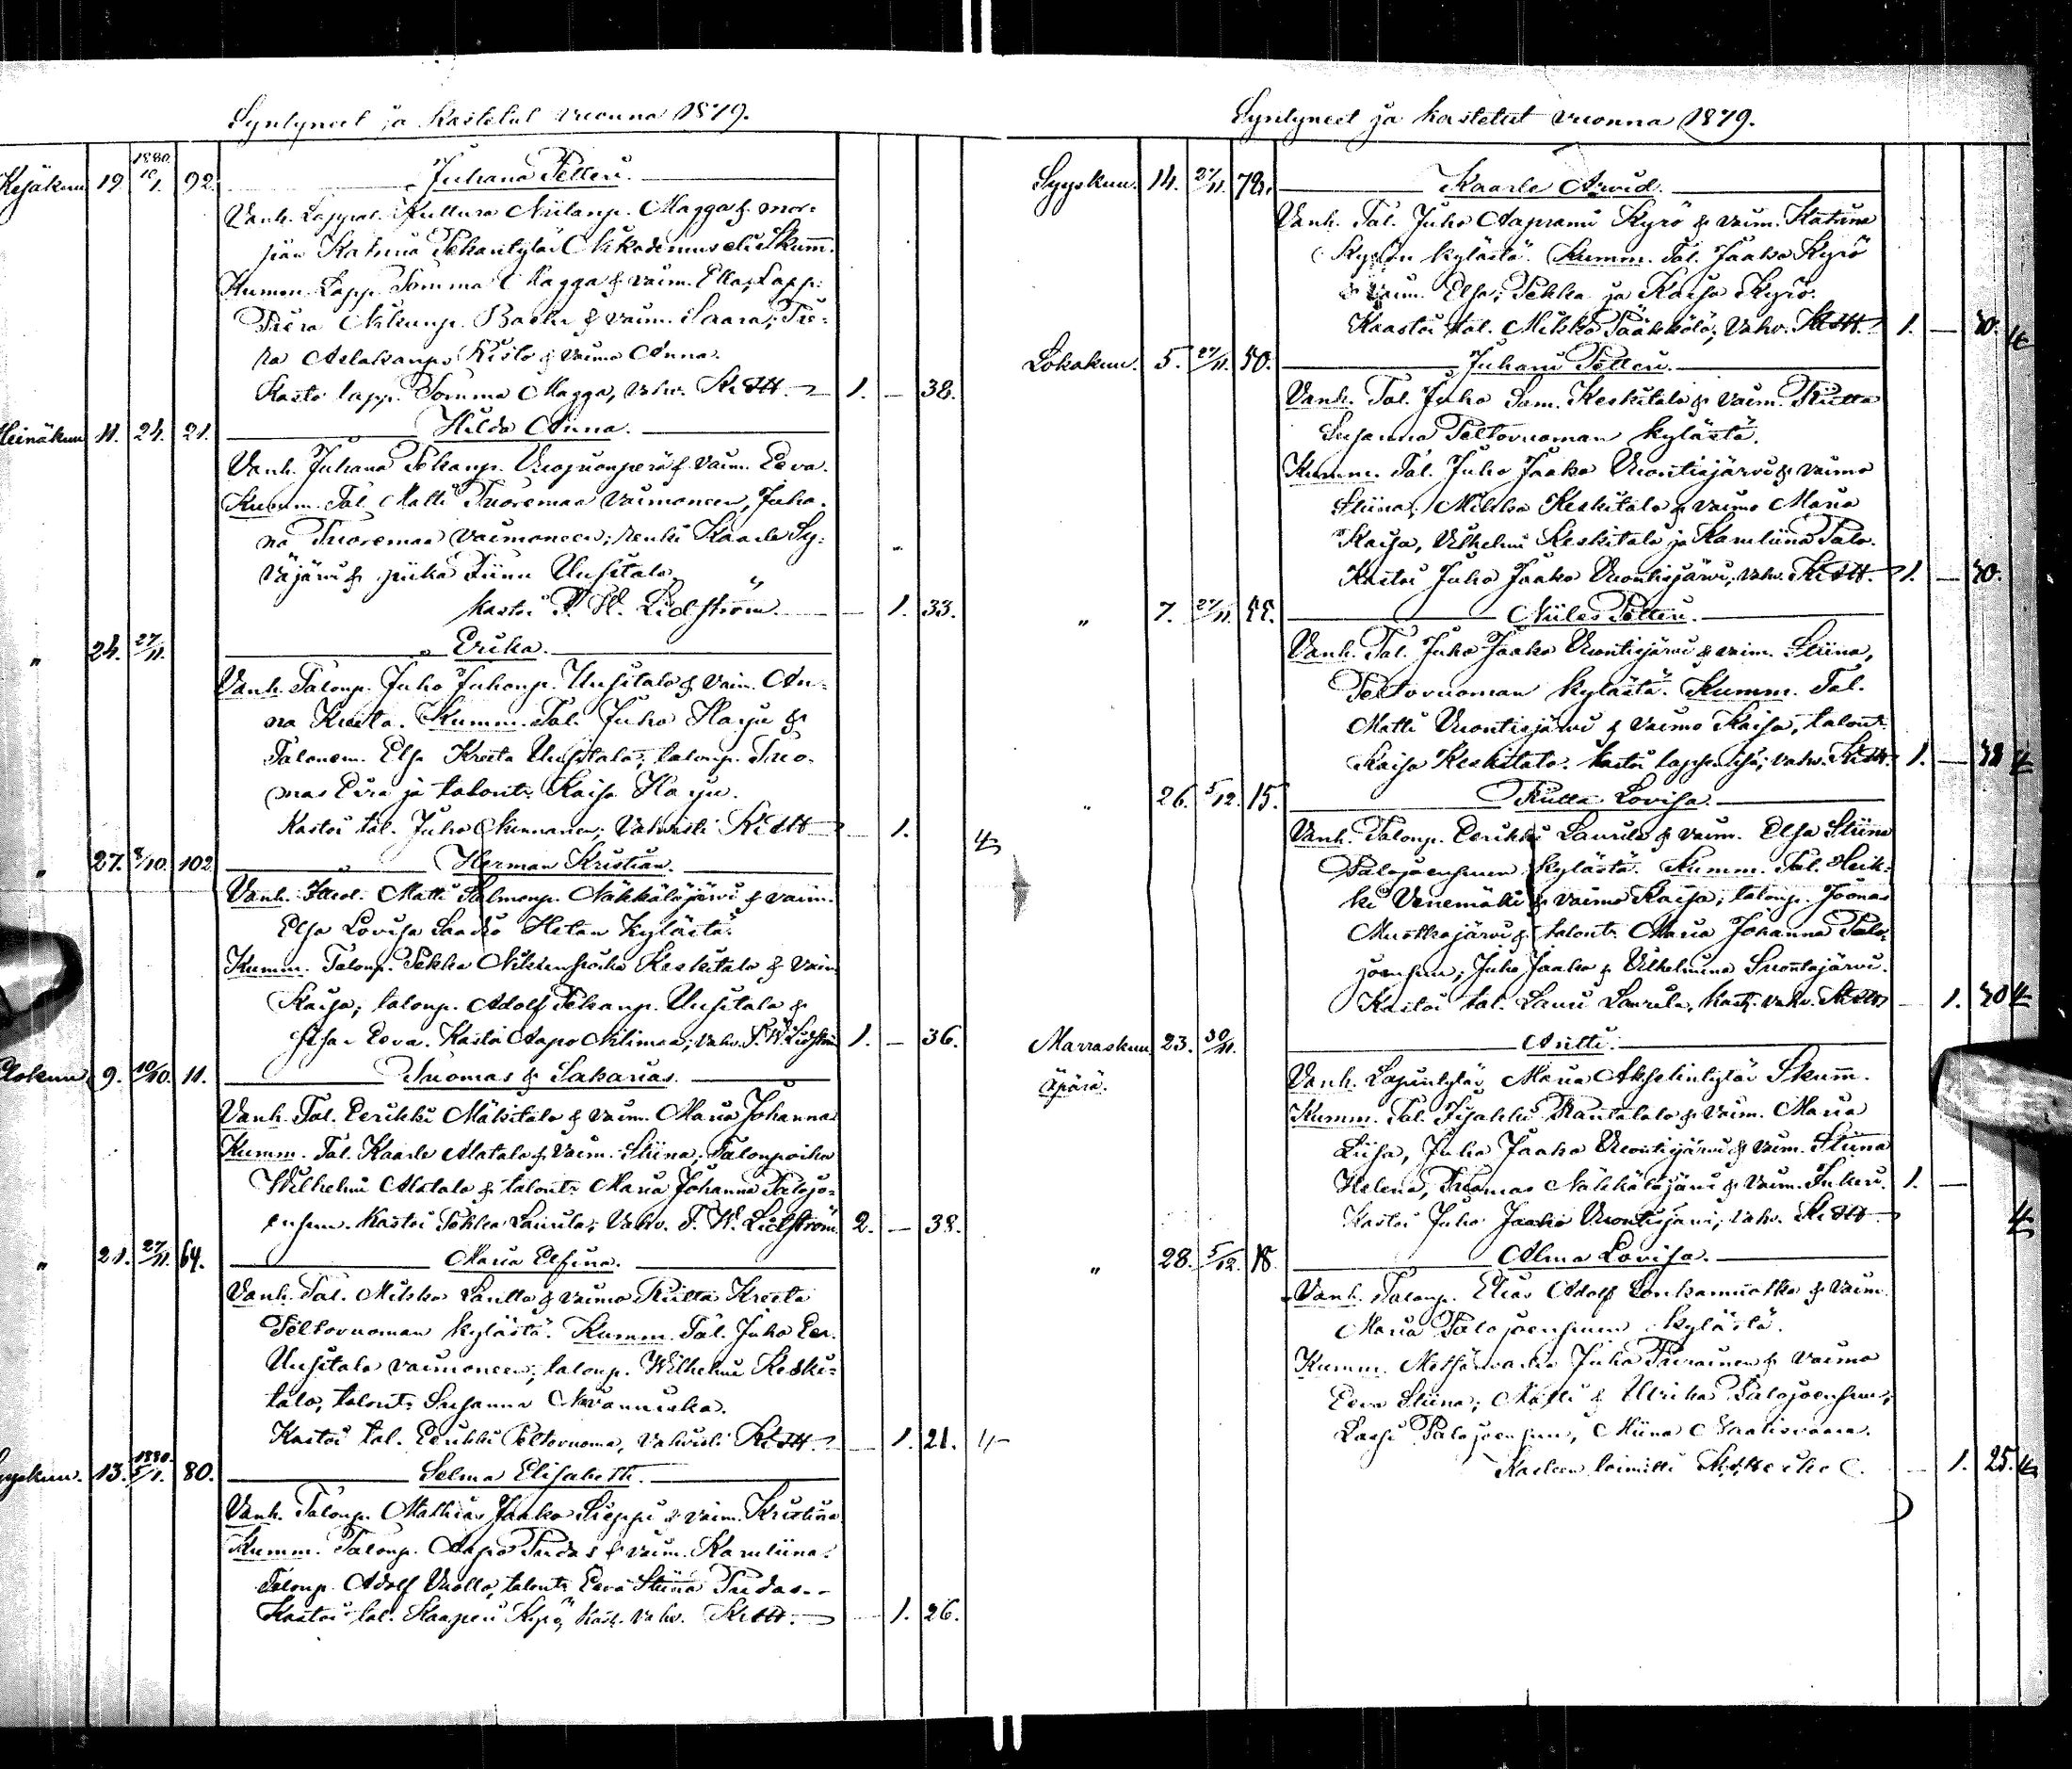 Syntyneet ja kastetut vuonna 1879.
Kesäkun 19. 1880 10/1. 92. Juhana Petteri.
Vanh. Lappal. Kuttura Niilanp. Magga & mor-
sian Katriina Pekantytär Skumm.
Kumm. Lapp. Tomma Magga & vaim. Elka, Lapp.
Piera & vaim. Saara; Pie-
ra Aslakanp. Kisto & vaimo Anna.
Kasto lapp. Tomma Magga, vahv. 1. — 38.
Heinäkun 11. 24. 21. Hilda Anna.
Vanh. Juhana Pekanp. Vuojuonperä & vaim. Eeva.
Kumm. Tal. Matti Tuoremaa vaimoneen, Juha-
na Tuoremaa vaimoneen; renki Kaarle Sy-
väjärvi & piika Uusitalo,
kastoi P. W. Lidström. — 1. 33.
" 24. 27/11. Erika.
Vanh. Talonp. Juho Juhonp. Uusitalo & vaim. An-
na Kreeta. Kumm. Tal. Juho Harju &
Talonem. Elsa Kreeta Uusitalo, talonp. Tuo-
mas Eira ja talont. Kaisa Harju.
Kastoi tal. Juho; Vahvisti — 1. 4
" 27. 8/10. 102 Herman Kristian.
Vanh. Matti Salmonp. Näkkäläjärvi & vaim.
Elsa Lovisa Saadio Hetan kylästä.
Kumm. Talonp. Pekka Keskitalo & vaim
Kaisa; talonp. Adolf Pekanp. Uusitalo &
Eeva. Kastoi Aapo Niilimaa; vahv. P. W. Lidström 1. — 36.
Elokun 9. 10/10. 11. Tuomas & Sakarias.
Vanh. Tal. Eerikki Mäkitalo & vaim. Maria Johanna
Kumm. Tal. Kaarle Alatalo & vaim. Stiina, Talonpoika
Wilhelmi Alatalo & talont. Maria Johanna Palojo-
ensuu. Kastoi Pekka Laurila; Vahv. P. W. Lidström 2. — 38.
" 21. 27/11. 64. Maria Elfina.
Vanh. Tal. Mikko Lautto & vaimo Riitta Kreeta
Peltovuoman kylästä. Kumm. Tal. Juho Eer.
Uusitalo vaimoneen; talonp. Wilhelmi Keski-
talo, talont. Susanna
Kastoi tal. Eerikki Peltovuoma, Vahvisti — 1. 21. 4
Syyskun. 13. 1880. 5/1. 80. Selma Elisabeth.
Vanh. Talonp. Mathias Jaako Sieppi & vaim. Kristiina
Kumm. Talonp. Aapo Pudas & vaim. Karuliina.
Talonp. Adolf Vuollo, talont. Eeva Stiina Pudas.
Kastoi tal. Kaaperi Kyrö, kast. vahv. — 1. 26.
Syntyneet ja kastetut vuonna 1879.
Syyskun. 14. 27/11. 78. Kaarle Arvid.
Vanh. Tal. Juho Aaprami Kyrö & vaim. Katriina
Kyrön kylästä. Kumm. Tal. Jaako Kyrö
& vaim. Elsa; Pekka ja Kaisa Kyrö.
Kaastoi tal. Mikko Pääkkölä; Vahv. 1. — 30. 4
Lokakun. 5. 27/11. 50. Juhani Petteri.
Vanh. Tal. Juho Sam. Keskitalo & vaim. Riitta
Susanna Peltovuoman kylästä.
Kumm. Tal. Juho Jaako Vuontisjärvi & vaimo
Stiina; Mikko Keskitalo & vaimo Maria
Kaisa, Vilhelmi Keskitalo ja Karuliina Palo.
Kastoi Juho Jaako Vuontisjärvi, vahv. 1. — 30.
" 7. 27/11. Niiles Petteri.
Vanh. Tal. Juho Jaako Vuontisjärvi & vaim. Stiina,
Peltovuoman kylästä. Kumm. Tal.
Matti Vuontisjärvi & vaimo Kaisa, talont.
Kaisa Keskitalo. kastoi lapsen isä; vahv. 1. — 38 4
" 26. 5/12. 15. Riitta Lovisa.
Vanh. Talonp. Eerikki Laurila & vaim. Elsa Stiina
Palojoensuun kylästä. Kumm. Tal. Heik-
ki Venemäki & vaimo Kaisa; talonp. Joonas
Muotkajärvi & talont. Maria Johanna Palo-
joensuu; Juho Jaako & Vilhelmina Suontajärvi.
Kastoi tal. Lauri Laurila, kast. vahv. — 1. 30 4
Marraskun 23. 30/11. Antti.
Äpärä. Vanh. Lapintytär Maria Akselintytär Skumm.
Kumm. Tal. Isakki Rautalalo & vaim. Maria
Liisa, Juho Jaako Vuontisjärvi & vaim. Stiina
Helena, Tuomas Näkkäläjärvi & vaim. Inkeri. 1. —
Kastoi Juho Jaako Vuontisjärvi, vahv. 4
" 28. 5/12. 18. Alma Lovisa.
Vanh. Talonp. Elias Adolf Lonkamuotka & vaim.
Maria Palojoensuun kylästä.
Kumm. Metsänvartia Juho Piirainen & vaimo
Eeva Stiina; Matti & Ulrika Palojoensuu,
Lassi Palojoensuu, Miina
Kasteen toimitti — 1. 25. 4